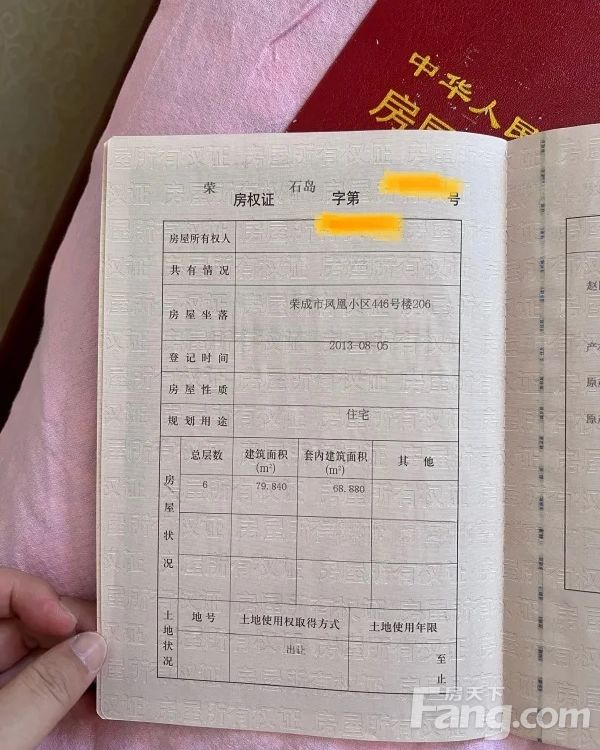 中华人民
房屋
荣 石岛
房权证 字第 号
房屋所有权人
共有情况
房屋坐落 荣成市凤凰小区446号楼206
登记时间 2013-08-05
房屋性质
规划用途 住宅
房屋状况
总层数 建筑面积(m²) 套内建筑面积(m²) 其他
6 79.840 68.880
土地状况
地号 土地使用权取得方式 土地使用年限
出让 至 止
赵
产
原
原
房天下
Fang.com